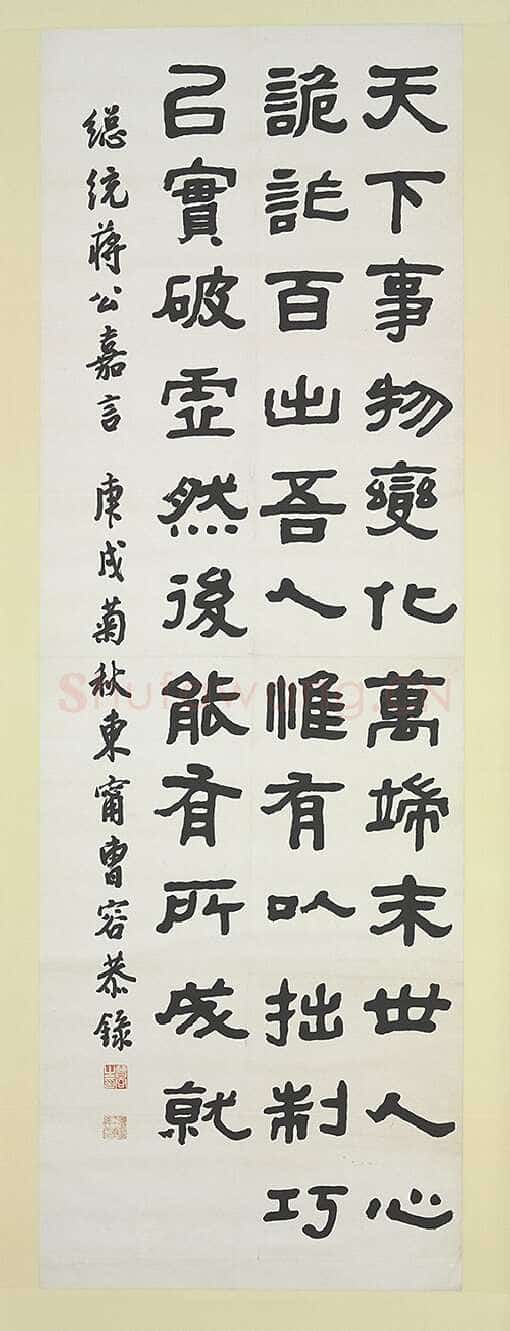 天下事物變化萬端末世人心
詭詐百出吾人惟有以拙制巧
㠯實破虛然後能有所成就
總統蔣公嘉言 庚戌菊秋東甯曾容恭錄
Shufawang.CN